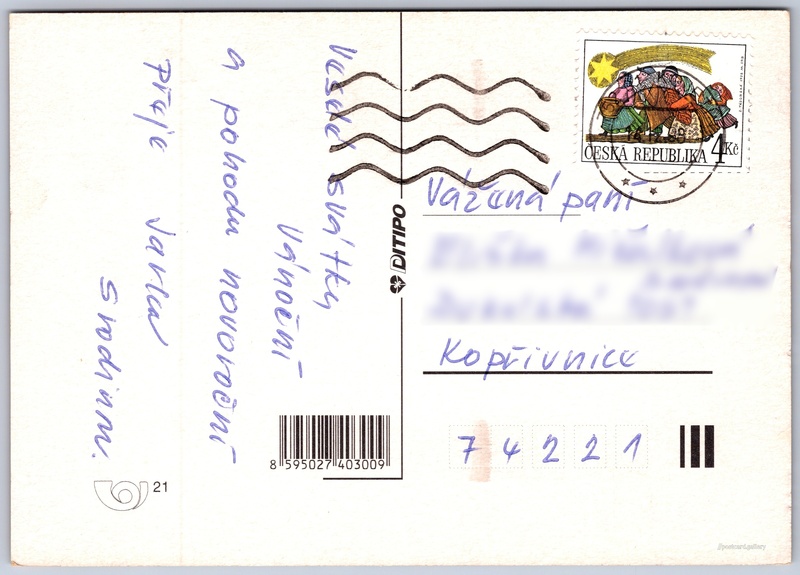 Veselé svátky
Vánoční
a pohodu novoroční
přeje Jarka
s rodinou.
DITIPO
8 595027 403009
21
ČESKÁ REPUBLIKA 4Kč
Vážená paní
Kopřivnice
74221
postcard.gallery